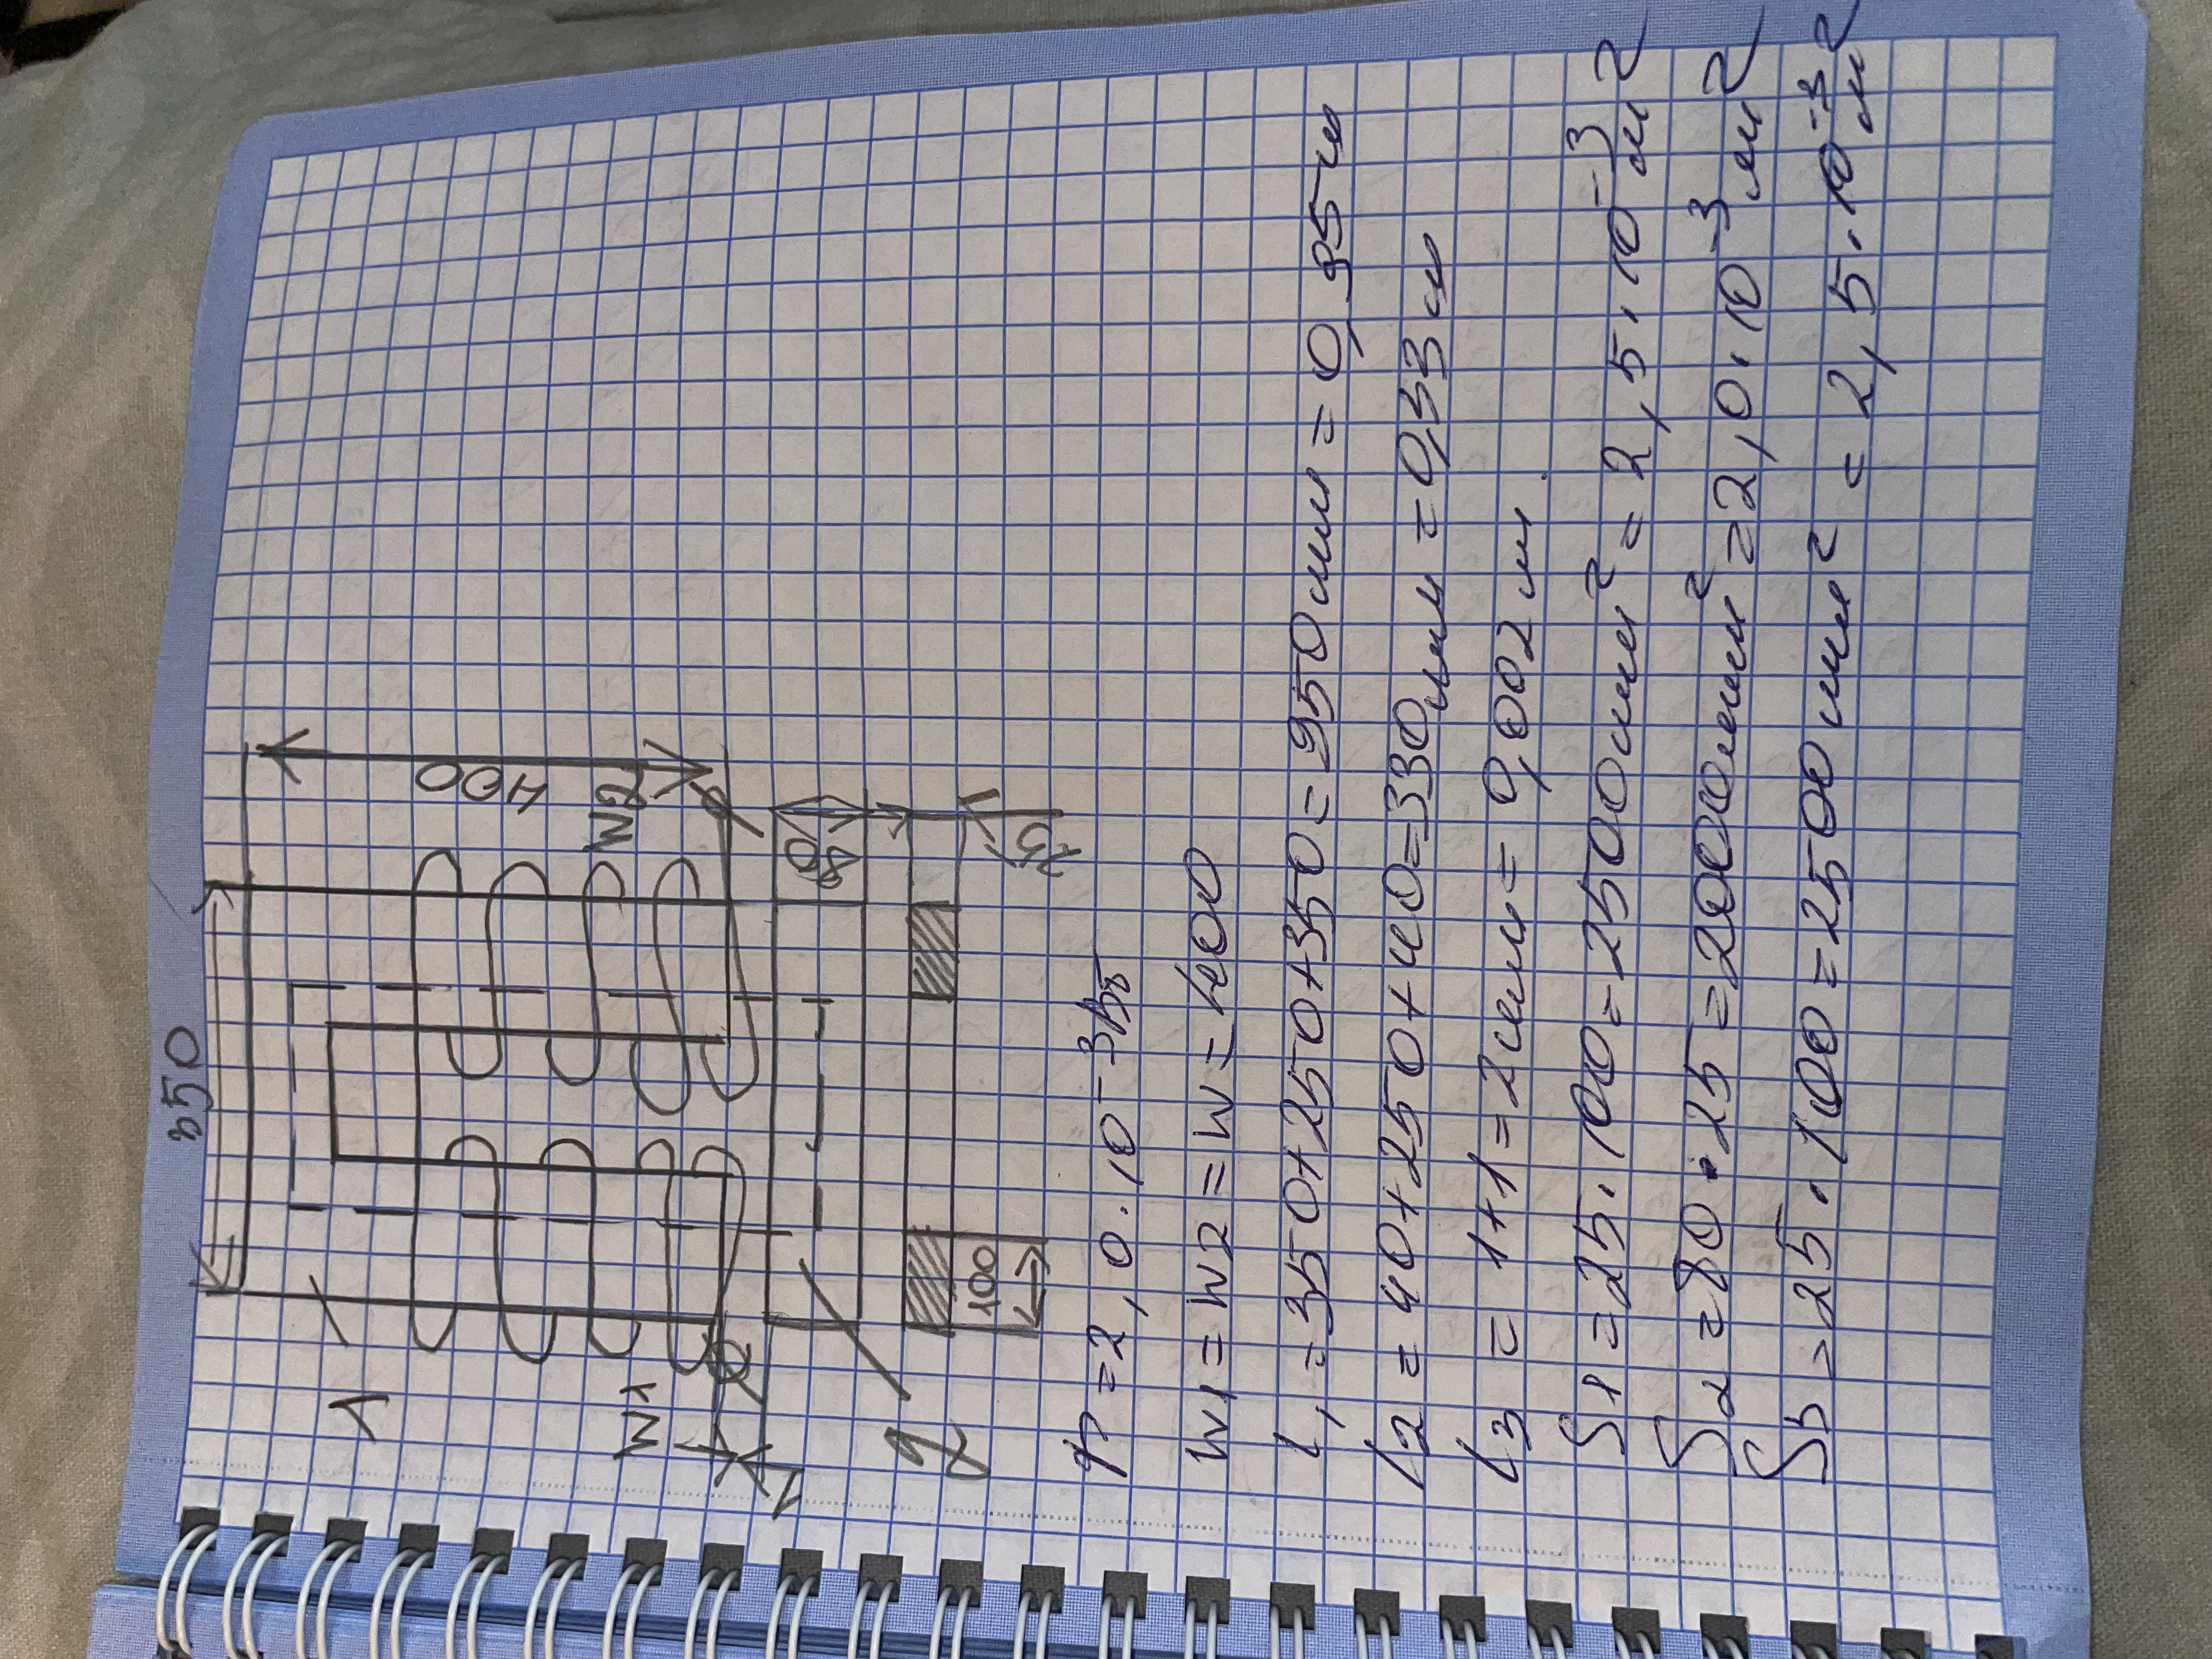 350
400
W1
W2
1
2
1
80
25
100
Ф = 2,0·10⁻³ Вб
W1 = W2 = W = 400
l1 = 350+250+350 = 950 мм = 0,95 м
l2 = 40+250+40=330 мм = 0,33 м
l3 = 1+1=2 мм = 0,002 м.
S1 = 25·100=2500 мм² = 2,5·10⁻³ м²
S2 = 80·25=2000 мм² = 2,0·10⁻³ м²
S3 = 25·100=2500 мм² = 2,5·10⁻³ м²